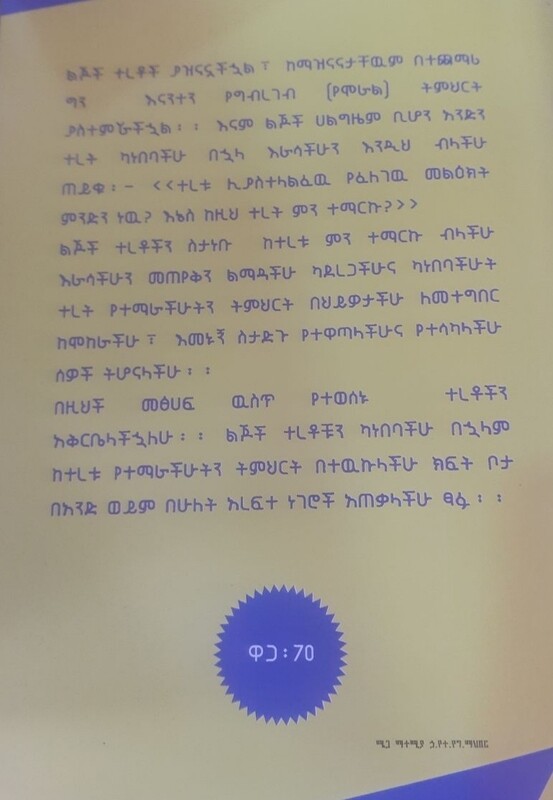 ልጆች ተረቶች ያዝናኗችኋል፣ ከማዝናናታቸዉም በተጨማሪ
ግን እናንተን የግብረገብ (የሞራል) ትምህርት
ያስተምሯችኋል፡፡ እናም ልጆች ሁልግዜም ቢሆን አንድን
ተረት ካነበባችሁ በኋላ እራሳችሁን እንዲህ ብላችሁ
ጠይቁ፡- <<ተረቱ ሊያስተላልፈዉ የፈለገዉ መልዕክት
ምንድን ነዉ? እኔስ ከዚህ ተረት ምን ተማርኩ?>>
ልጆች ተረቶችን ስታነቡ ከተረቱ ምን ተማርኩ ብላችሁ
እራሳችሁን መጠየቅን ልማዳችሁ ካደረጋችሁና ካነበባችሁት
ተረት የተማራችሁትን ትምህርት በህይዎታችሁ ለመተግበር
ከሞከራችሁ፣ እመኑኝ ስታድጉ የተዋጣላችሁና የተሳካላችሁ
ሰዎች ትሆናላችሁ፡፡
በዚህች መፅሀፍ ዉስጥ የተወሰኑ ተረቶችን
አቅርቤላችኋለሁ፡፡ ልጆች ተረቶቹን ካነበባችሁ በኋላም
ከተረቱ የተማራችሁትን ትምህርት በተዉኩላችሁ ክፍት ቦታ
በአንድ ወይም በሁለት አረፍተ ነገሮች አጠቃላችሁ ፃፉ፡፡
ዋጋ፡70
ሜጋ ማተሚያ ኃ.የተ.የግ.ማህበር